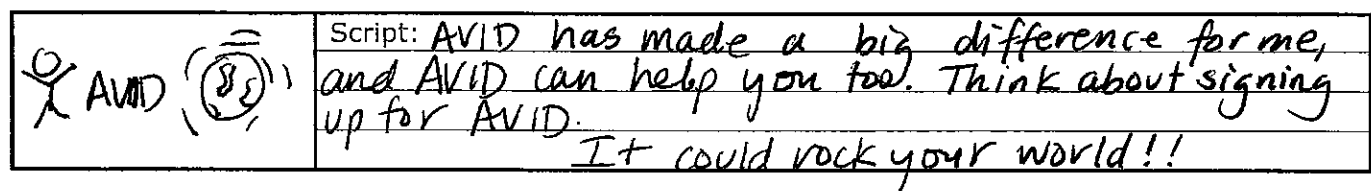 AVID
Script: AVID has made a big difference for me,
and AVID can help you too. Think about signing
up for AVID.
It could rock your world!!